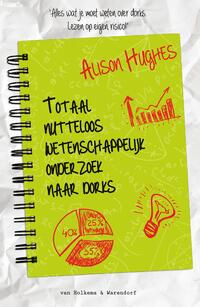 'Alles wat je moet weten over dorks.
Lezen op eigen risico!'
Alison Hughes
Totaal
nutteloos
wetenschappelijk
onderzoek
naar dorks
25%
40%
35%
van Holkema & Warendorf